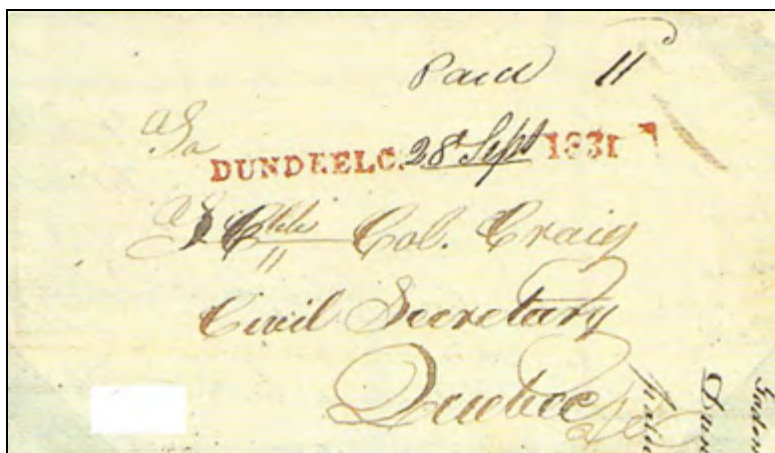 Paid 11
To
DUNDEE L.C. 28 Sept 1831
Col. Craig
Civil Secretary
Quebec